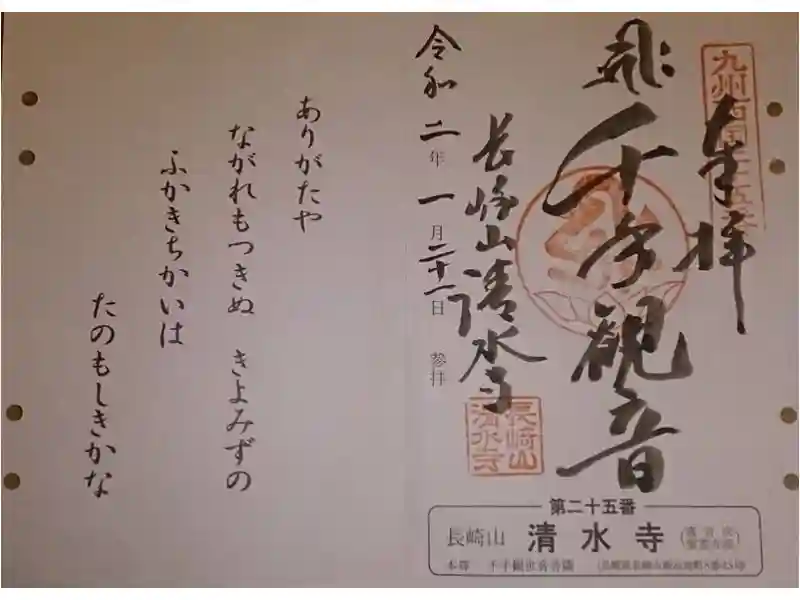 九州西国二十五番
奉拝
千手観音
長崎山清水寺
令和二年一月二十一日 参拝
長崎山
清水寺
ありがたや
ながれもつきぬ きよみずの
ふかきちかいは
たのもしきかな
第二十五番
長崎山 清水寺
本尊 千手観世音菩薩